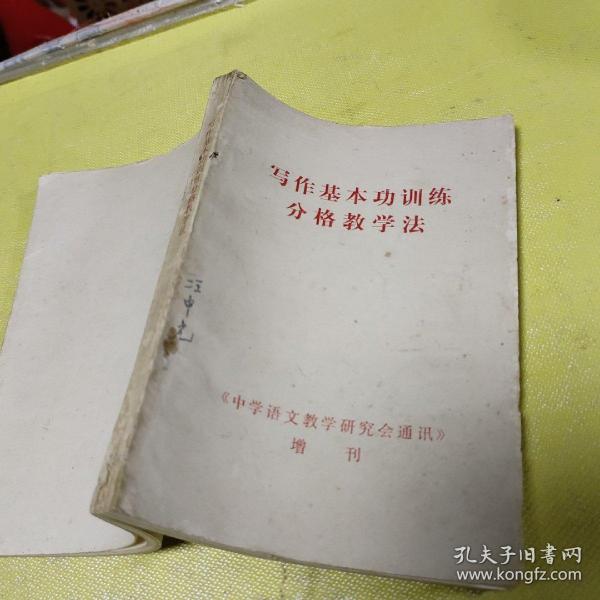 写作基本功训练
分格教学法
《中学语文教学研究会通讯》
增 刊
孔夫子旧书网
www.kongfz.com